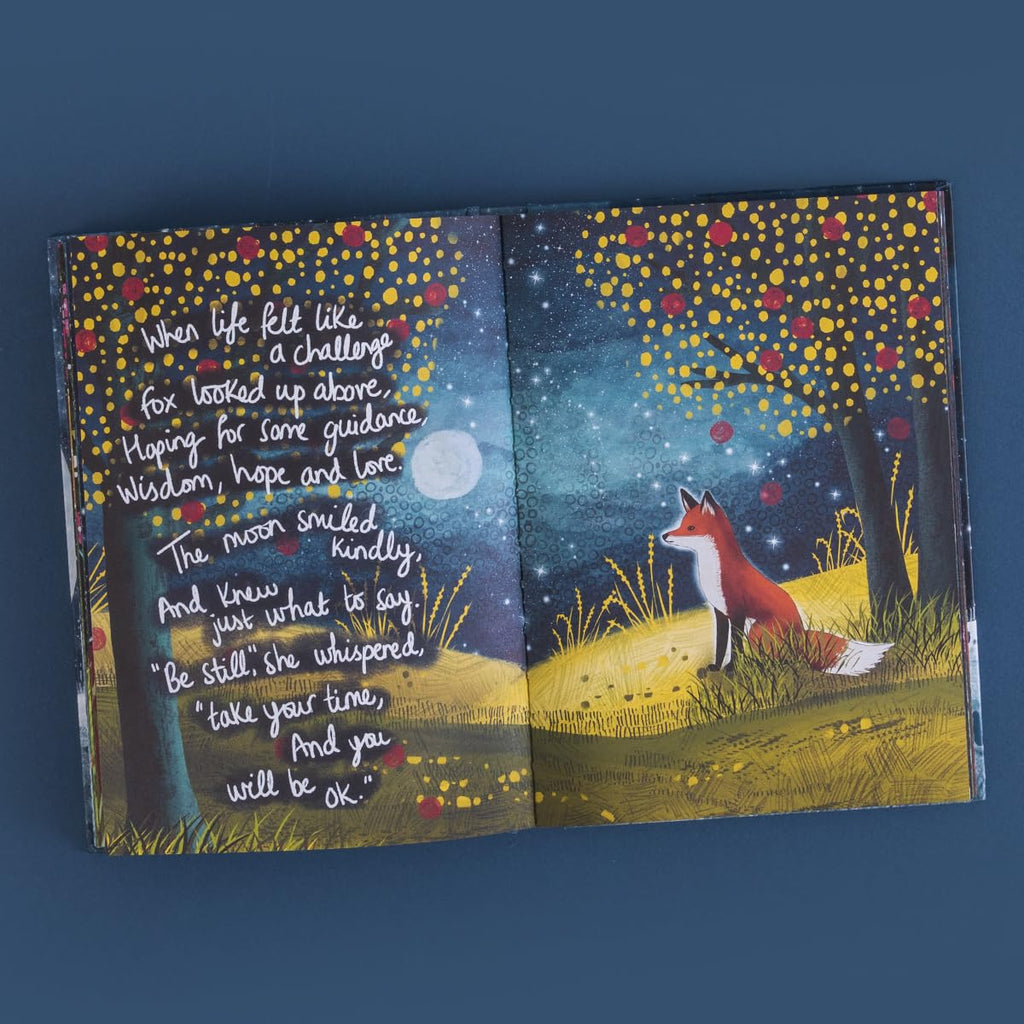 When life felt like
a challenge
Fox looked up above,
Hoping for some guidance,
Wisdom, hope and love.
The moon smiled
kindly,
And knew
just what to say.
"Be still", she whispered,
"take your time,
And you
will be OK."